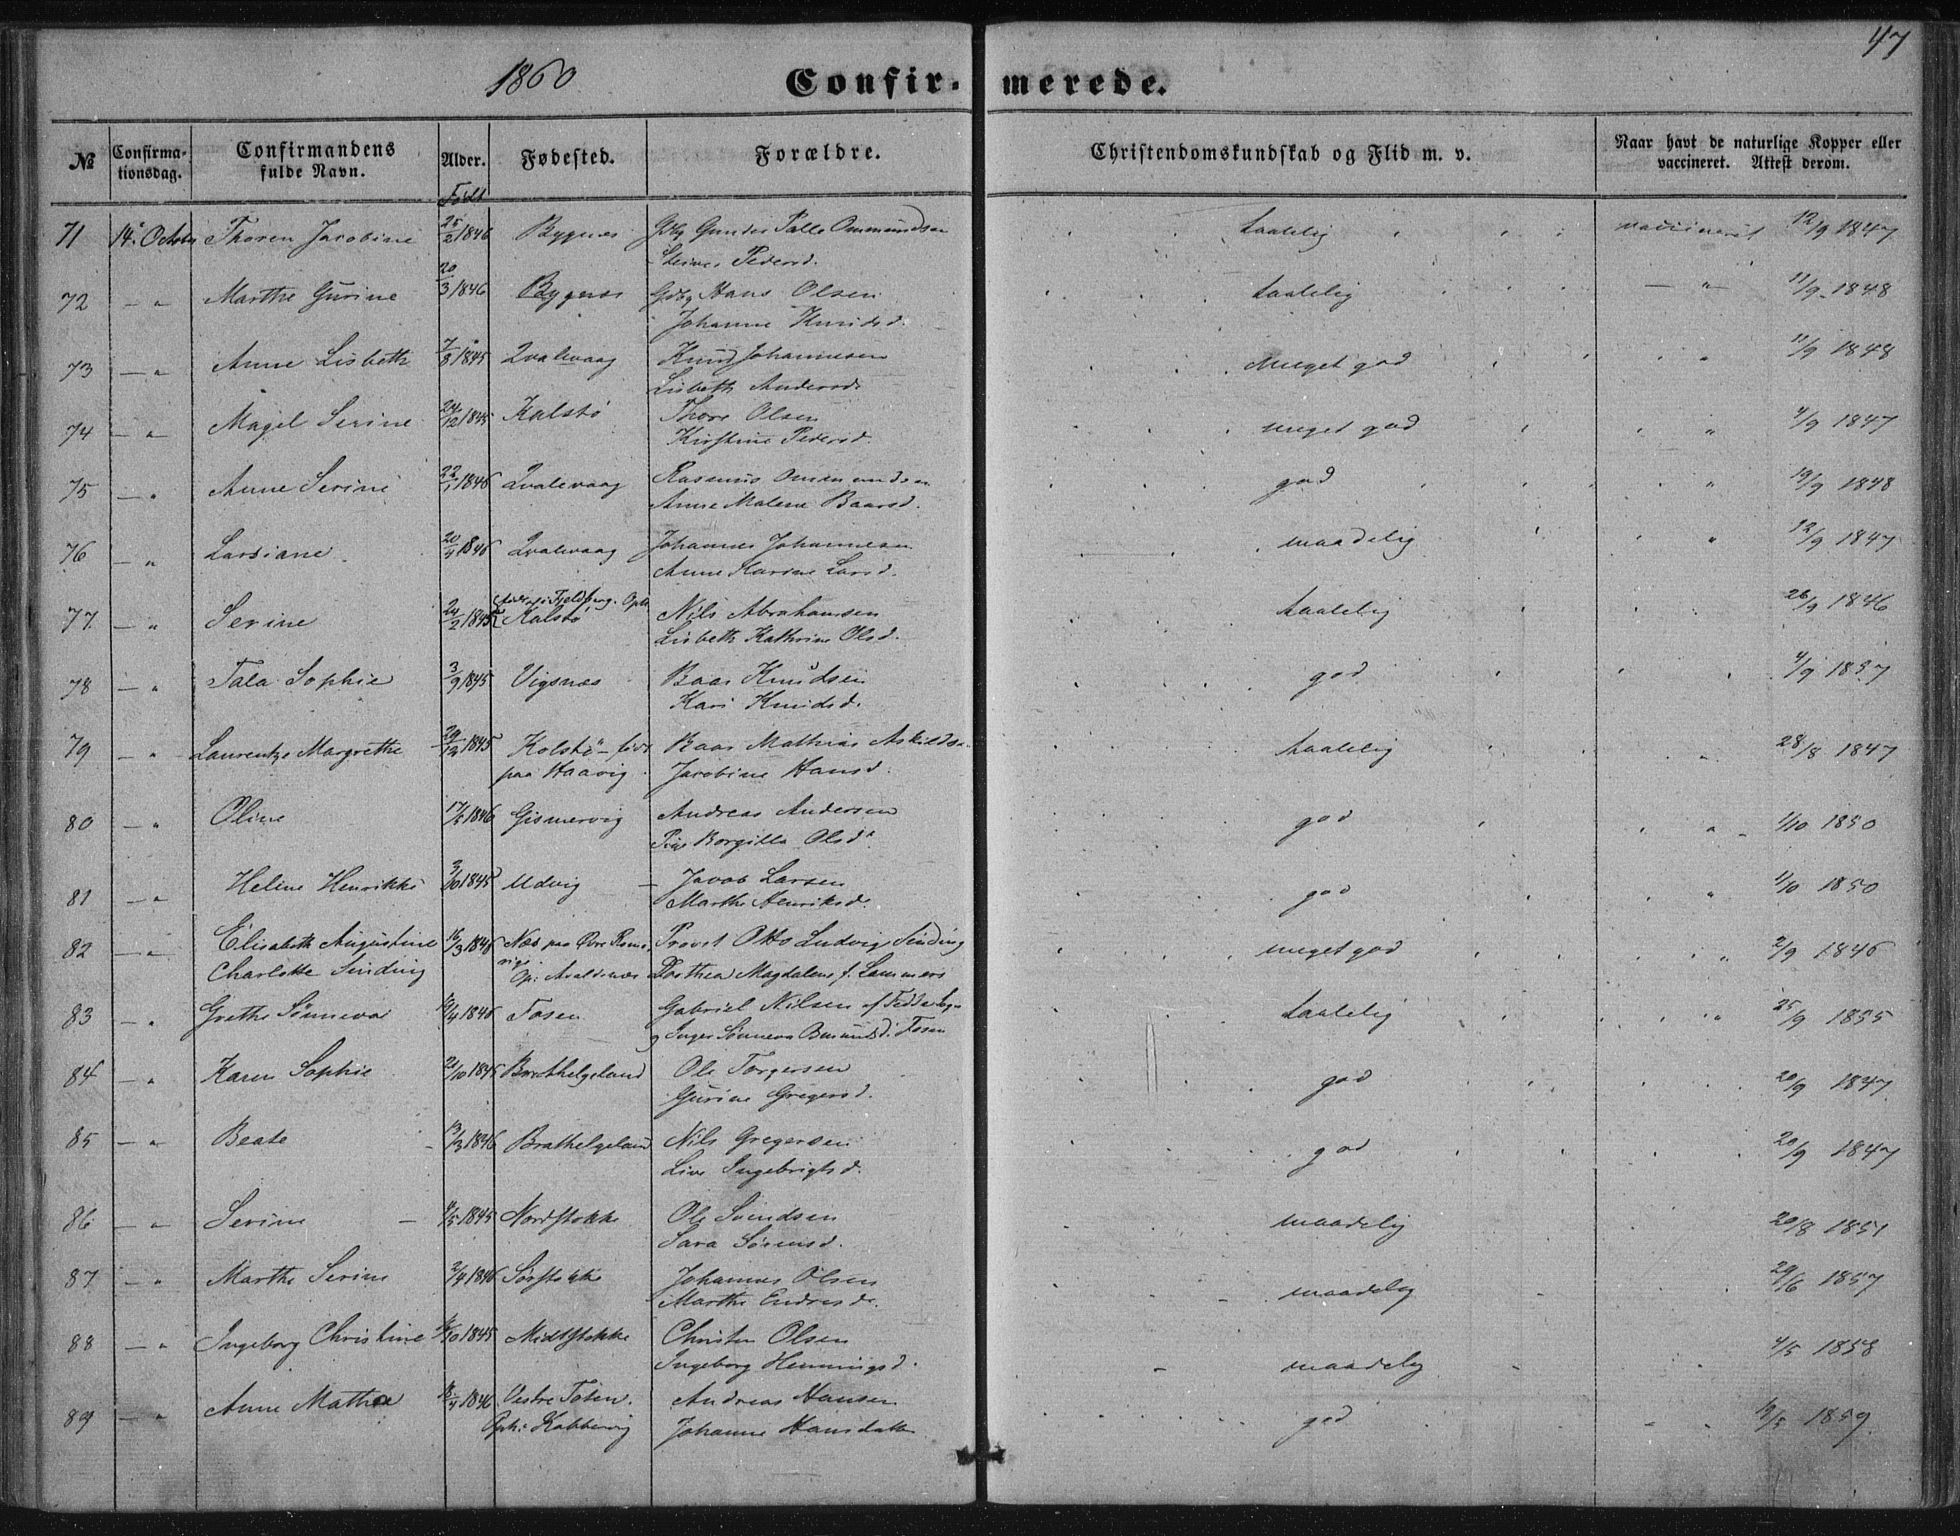 47
1860 Confir- merede.
№ Confirma- tionsdag. Confirmandens fulde Navn. Alder. Fødested. Forældre. Christendomskundskab og Flid m. v. Naar havt de naturlige Kopper eller vaccineret. Attest derom.
Født
71 14. Octbr Thoren Jacobine 25/2 1846 Bygnes Gdbg Gunder Palle Ommundsen taalelig vaccineret 12/9 1847
Pedersd.
72 — " Marthe Gurine 20/3 1846 Bygnes Gdbg Hans Olsen taalelig — " — 11/9 1848
Johanne Knudsd.
73 — " Anne Lisbeth 7/8 1845 Qvalevaag Knud Johannesen Meget god " 11/9 1848
Lisbeth Andersd.
74 — " Magel Serine 24/12 1845 Kalstø Thore Olsen meget god " 4/9 1847
Kirstine Pedersd.
75 — " Anne Serine 22/1 1846 Qvalevaag Rasmus Ommundsen god " 19/9 1848
Anne Malene Baarsd.
76 — " Larsiane 20/4 1846 Qvalevaag Johannes Johannesen maadelig " 12/9 1847
Anne Karine Larsd.
77 — " Serine 24/2 1845 Kalstø Nils Abrahamsen taalelig 26/9 1846
Lisbeth Kathrine Olsd.
78 — " Tala Sophie 3/9 1845 Vigsnæs Baar Knudsen god 4/9 1857
Kari Knudsd.
79 — " Laurentze Margrethe 29/12 1845 Kolstø - født Baar Mathias Askildsn taalelig 28/8 1847
paa Haavig Jacobine Hansd.
80 — " Oline 17/2 1846 Gismervig Andreas Andersen god " 1/10 1850
Borgille Olsd.
81 — " Heline Henrikke 3/10 1845 Udvig — Jacob Larsen god " 1/10 1850
Marthe Henriksd.
82 — " Elisabeth Augustine 16/3 1846 Næs paa Provst Otto Ludvig Sinding meget god " 2/9 1846
Charlotte Sinding Op. Avaldsnæs Dorthea Magdalena f. Lammers
83 — " Grethe Sønneva 10/4 1846 Fosen Gabriel Nilsen taalelig " 25/9 1855
Inger Sønneva Fosen
84 — " Karen Sophie 21/10 1845 Brathelgeland Ole Torgersen god 20/9 1847
Gurine Gregersd.
85 — " Beate 13/3 1846 Brathelgeland Nils Gregersen god 20/9 1847
Live Ingebrigtsd.
86 — " Serine 4/5 1845 Nordstokke Ole Svendsen maadelig 20/8 1851
Sara Sørensd.
87 — " Marthe Serine 2/4 1846 Sørstokke Johannes Olsen maadelig 29/6 1857
Marthe Endresd.
88 — " Ingeborg Christine 4/10 1845 Midtstokke Christen Olsen 4/5 1858
Ingeborg Henningsd. maadelig
89 — " Anne Mathea 18/4 1846 Vestre Fosen. Andreas Hansen god 12/5 1859
Oph: Kobbervig Johanne Hansdatter